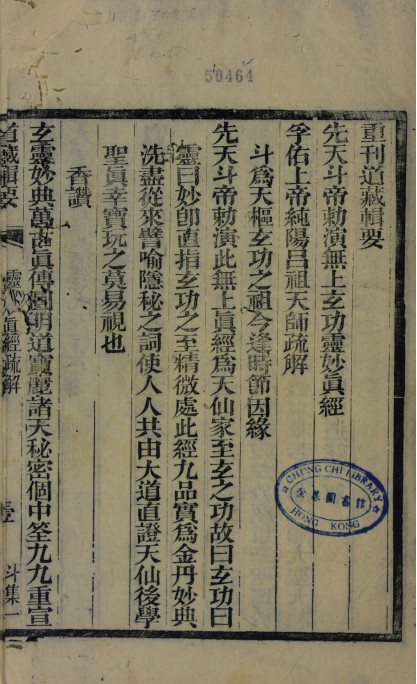 50464
重刊道藏輯要
先天斗帝勅演無上玄功靈妙眞經
孚佑上帝純陽呂祖天師疏解
斗爲天樞玄功之祖今逢時節因緣
先天斗帝勅演此無上眞經爲天仙家至玄之功故曰玄功曰
靈曰妙卽直指玄功之至精微處此經九品實爲金丹妙典
洗盡從來譬喻隱秘之詞使人人共由大道直證天仙後學
聖眞幸寶玩之莫易視也
香讚
玄靈妙典萬古眞傳圖明道竅諸天秘密個中筌九九重宣
道藏輯要
靈
眞經疏解
壹
斗集一
CHUNG CHI LIBRARY
崇基圖書館
HONG KONG